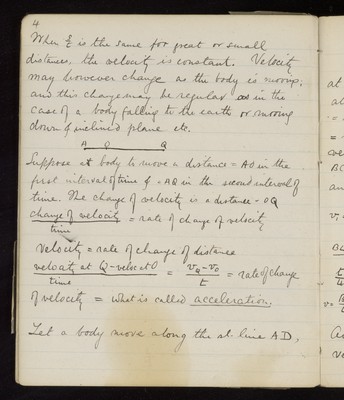 4
When s/t is the same for great or small
distances, the velocity is constant. Velocity
may however change as the body is moving.
and this change may be regular as in the
case of a body falling to the earth or moving
down an inclined plane etc.
A O Q
Suppose a body to move a distance = AO in the
first interval of time & = AQ in the second interval of
time. The change of velocity is a distance = OQ
change of velocity / time = rate of change of velocity
Velocity = rate of change of distance
velocity at Q - veloc at O / time = vQ - vO / t = rate of change
of velocity = what is called acceleration.
Let a body move along the st. line AD,